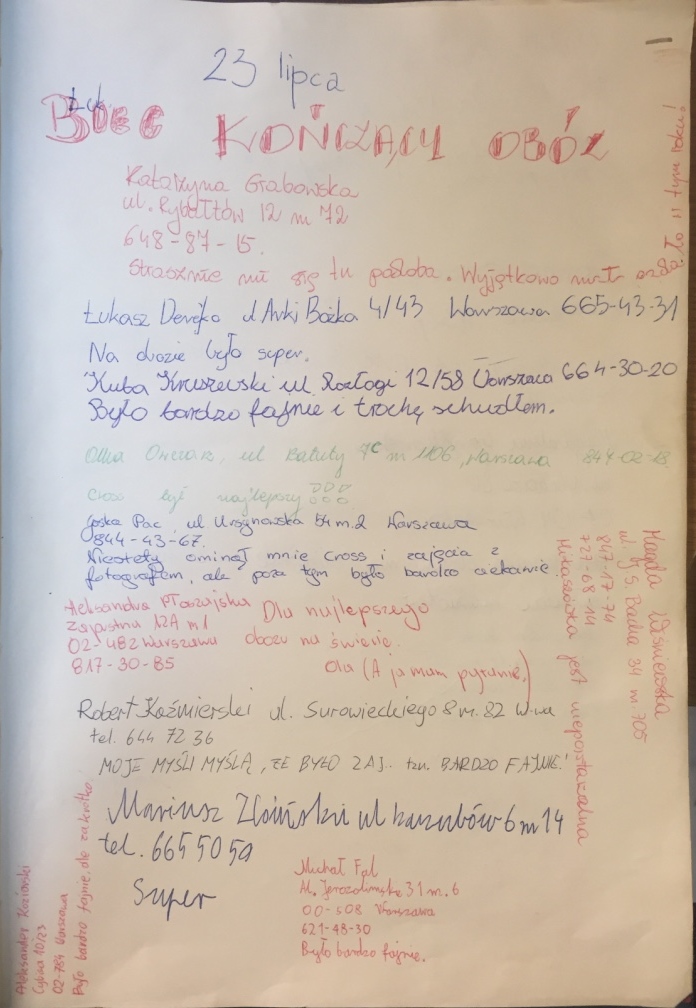 23 lipca
KOŃCZĄCY OBÓZ
Katarzyna Grabowska
ul. Rybałtów 12 m 72
648-87-15.
Strasznie mi się tu podoba. Wyjątkowo
w tym roku!
Łukasz 4/43 Warszawa 665-43-31
Na obozie było super.
Kuba Kruszewski ul. Rozłogi 12/58 Warszawa 664-30-20
Było bardzo fajnie i trochę schudłem.
ul Batuty 7C m 1106, Warszawa 844-02-18
Cross był najlepszy
Jośka Pac, ul Ursynowska 54 m.2 Warszawa
844-43-67.
Niestety ominął mnie cross i zajęcia z
fotografem, ale poza tym było bardzo ciekawie
Magda Wiśniewska
ul. J. S. Bacha 34 m 705
847-17-74
727-68-14
jest niepowtarzalna
Aleksandra Płoszajska
Zapustna 12A m 1
02-482 Warszawa
817-30-85
Dla najlepszego
obozu na świecie.
Ola (A ja mam pytanie,)
Robert Koźmierski ul. Surowieckiego 8 m. 82 W-wa
tel. 644 72 36
MOJE MYŚLI MYŚLĄ, ŻE BYŁO ZAJ.. tzn. BARDZO FAJNIE!
Mariusz ul kaszubów 6 m 14
tel. 665 50 50
Super
Michał Fal
Al. Jerozolimskie 31 m. 6
00-508 Warszawa
621-48-30
Było bardzo fajnie.
Aleksander Kozłowski
Cybisa 10/23
02-784 Warszawa
Było bardzo fajnie, ale za krótko